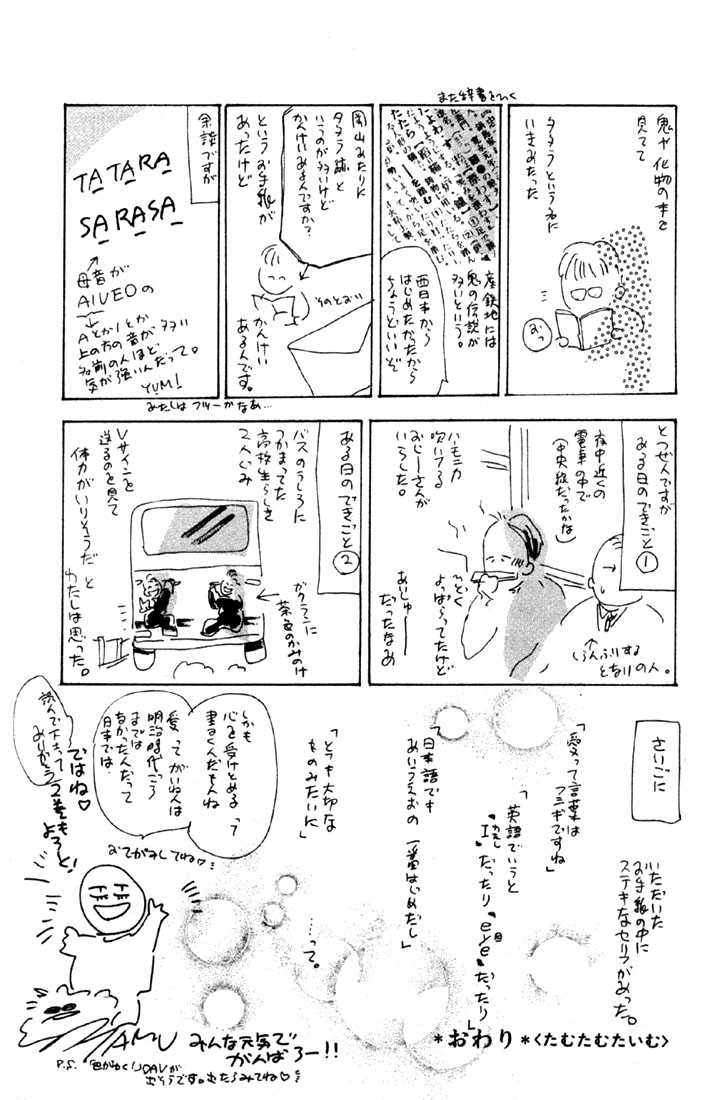 鬼や化物の本を
見てて
タタラという名に
いきあたった
また辞書をひく
産鉄地には
鬼の伝説が
多いという。
西日本から
はじめたかったから
ちょうどいいぞ
岡山あたりに
タタラ跡と
いうのが多いけど
かんけいあるんですか?
というお手紙が
あったけど
そのとおり
かんけい
あるんです。
余談ですが
TATARA
SARASA
母音が
AIUEOの
AとかIとか
上の方の音が多い
名前の人ほど
気が強いんだって。
YUMI
とつぜんですが
ある日のできごと①
夜中近くの
電車の中で
(中央線だったかな)
ハモニカ
吹いてる
おじーさんが
いらした。
よっぱらってたけど
だったなあ
しらんふりする
となりの人。
ある日のできごと②
バスのうしろに
つかまってた
高校生らしき
2人ぐみ
ガクランに
茶色のかみのけ
Vサインを
送るのを見て
体力がいりそうだ と
わたしは思った。
さいごに
いただいた
お手紙の中に
ステキなセリフがあった。
「愛って言葉は
フシギですね」
「英語でいうと
"I"だったり "eye"だったり」
「日本語でも
あいうえおの 一番はじめだし」
「とても大切な
ものみたいに」
……って。
しかも
心を受けとめる って
書くんだもんね
愛ってがいねんは
明治時代ごろ
までは
なかったんだって
日本では。
おてがみしてね
ではね♡
2巻もよろしく!
読んで下さって
ありがとう
TAMU
みんな元気で
がんばろー!!
*おわり*<たむたむたいむ>